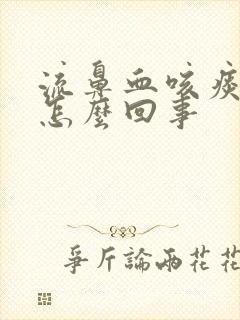 流鼻血咳痰
怎麼回事
爭斤論兩花花